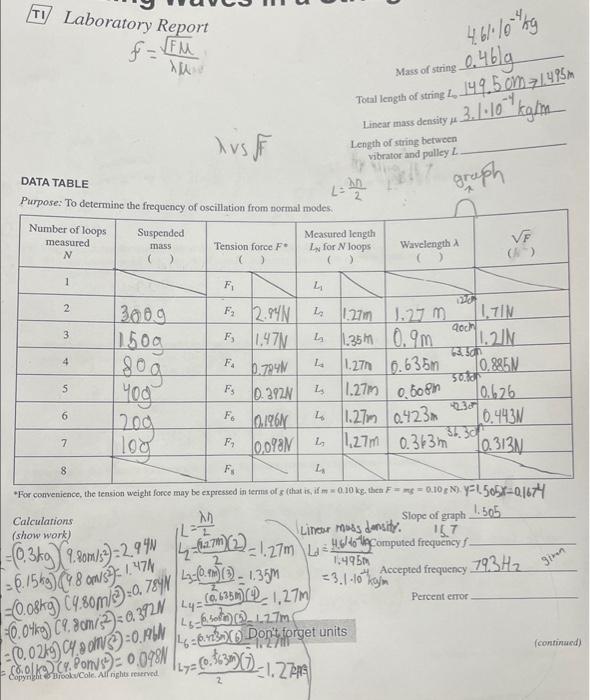 TI Laboratory Report
f = √FM / λμ
4.61·10⁻⁴ kg
Mass of string 0.461g
Total length of string L₀ 149.5cm → 1.495m
Linear mass density μ 3.1·10⁻⁴ kg/m
Length of string between
vibrator and pulley L
λ vs √F
L = λn/2
graph
DATA TABLE
Purpose: To determine the frequency of oscillation from normal modes.
Number of loops measured N | Suspended mass ( ) | Tension force F* ( ) | Measured length L_N for N loops ( ) | Wavelength λ ( ) | √F ( )
1 F₁ L₁
2 300g F₂ 2.94N L₂ 1.27m 1.27 m 127cm 1.71N
3 150g F₃ 1.47N L₃ 1.35m 0.9m 90cm 1.21N
4 80g F₄ 0.784N L₄ 1.27m 0.635m 63.5cm 0.885N
5 40g F₅ 0.392N L₅ 1.27m 0.508m 50.8cm 0.626
6 20g F₆ 0.196N L₆ 1.27m 0.423m 42.3cm 0.443N
7 10g F₇ 0.098N L₇ 1.27m 0.363m 36.3cm 0.313N
8 F₈ L₈
*For convenience, the tension weight force may be expressed in terms of g (that is, if m = 0.10 kg, then F = mg = 0.10 g N). y=1.505x-0.1674
Calculations
(show work)
=(0.3kg)(9.80m/s²)=2.94N
=(0.15kg)(9.80m/s²)=1.47N
=(0.08kg)(9.80m/s²)=0.784N
=(0.04kg)(9.80m/s²)=0.392N
=(0.02kg)(9.80m/s²)=0.196N
=(0.01kg)(9.80m/s²)=0.098N
L = λn/2
L₂=(1.27m)(2)/2=1.27m
L₃=(0.9m)(3)/2=1.35m
L₄=(0.635m)(4)/2=1.27m
L₅=(0.508m)(5)/2=1.27m
L₆=(0.423m)(6)
L₇=(0.363m)(7)/2=1.27
Linear mass density.
1.495m
=3.1·10⁻⁴ kg/m
Slope of graph 1.505
Computed frequency f 15.7
Accepted frequency 793Hz given
Percent error
Don't forget units
(continued)
Copyright © Brooks/Cole. All rights reserved.